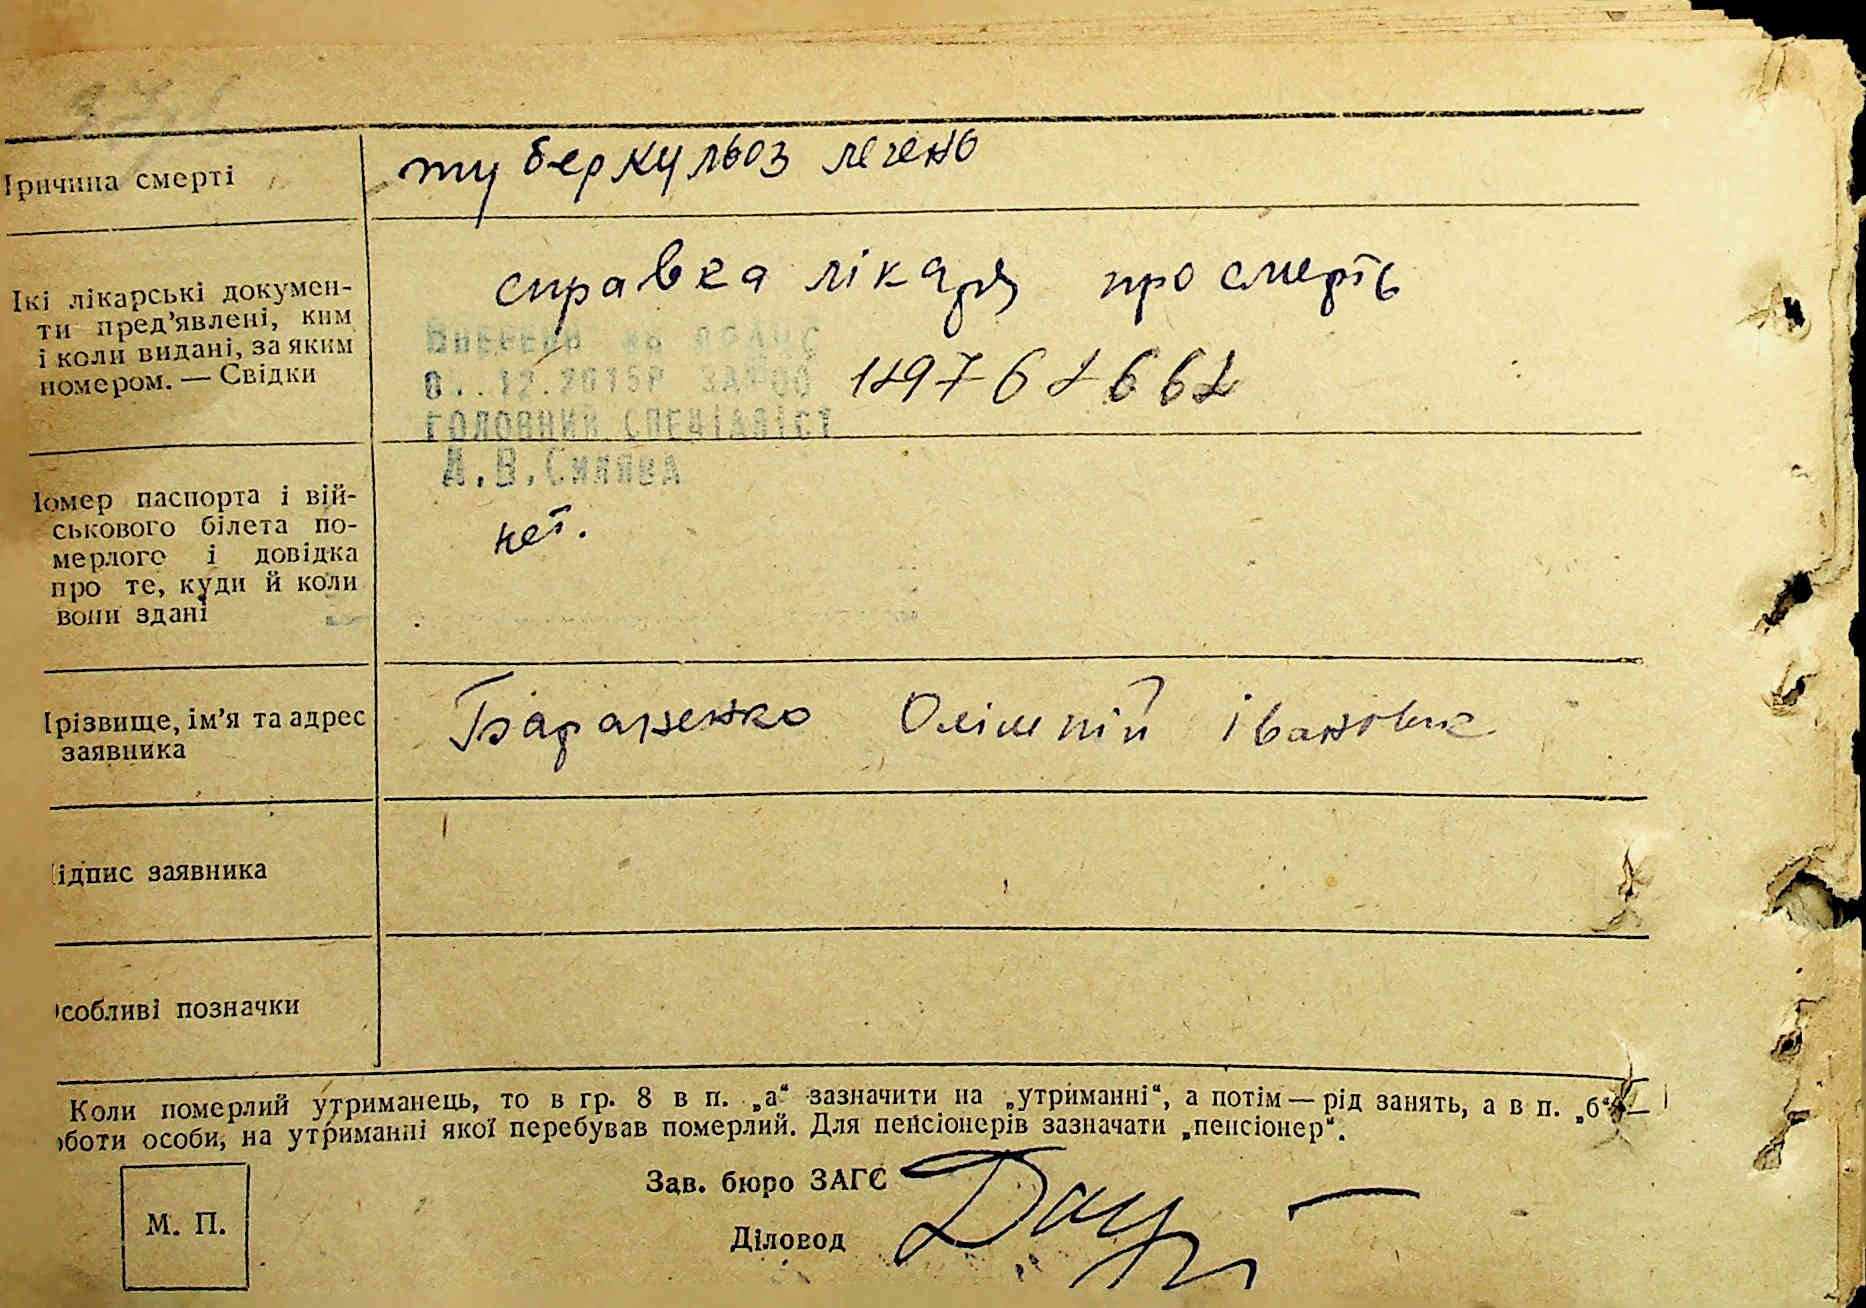 Причина смерті
туберкульоз легень
Які лікарські докумен-
ти пред'явлені, ким
і коли видані, за яким
номером. — Свідки
справка лікаря про смерть
Внесено до
12.2015р
ГОЛОВНИЙ СПЕЦІАЛІСТ
Номер паспорта і вій-
ськового білета по-
мерлого і довідка
про те, куди й коли
вони здані
нет.
Прізвище, ім'я та адрес
заявника
Бараненко Олімпій Іванович
Підпис заявника
Особливі позначки
Коли померлий утриманець, то в гр. 8 в п. „а“ зазначити на „утриманні“, а потім — рід занять, а в п. „б“ —
роботи особи, на утриманні якої перебував померлий. Для пенсіонерів зазначати „пенсіонер“.
Зав. бюро ЗАГС
М. П.
Діловод